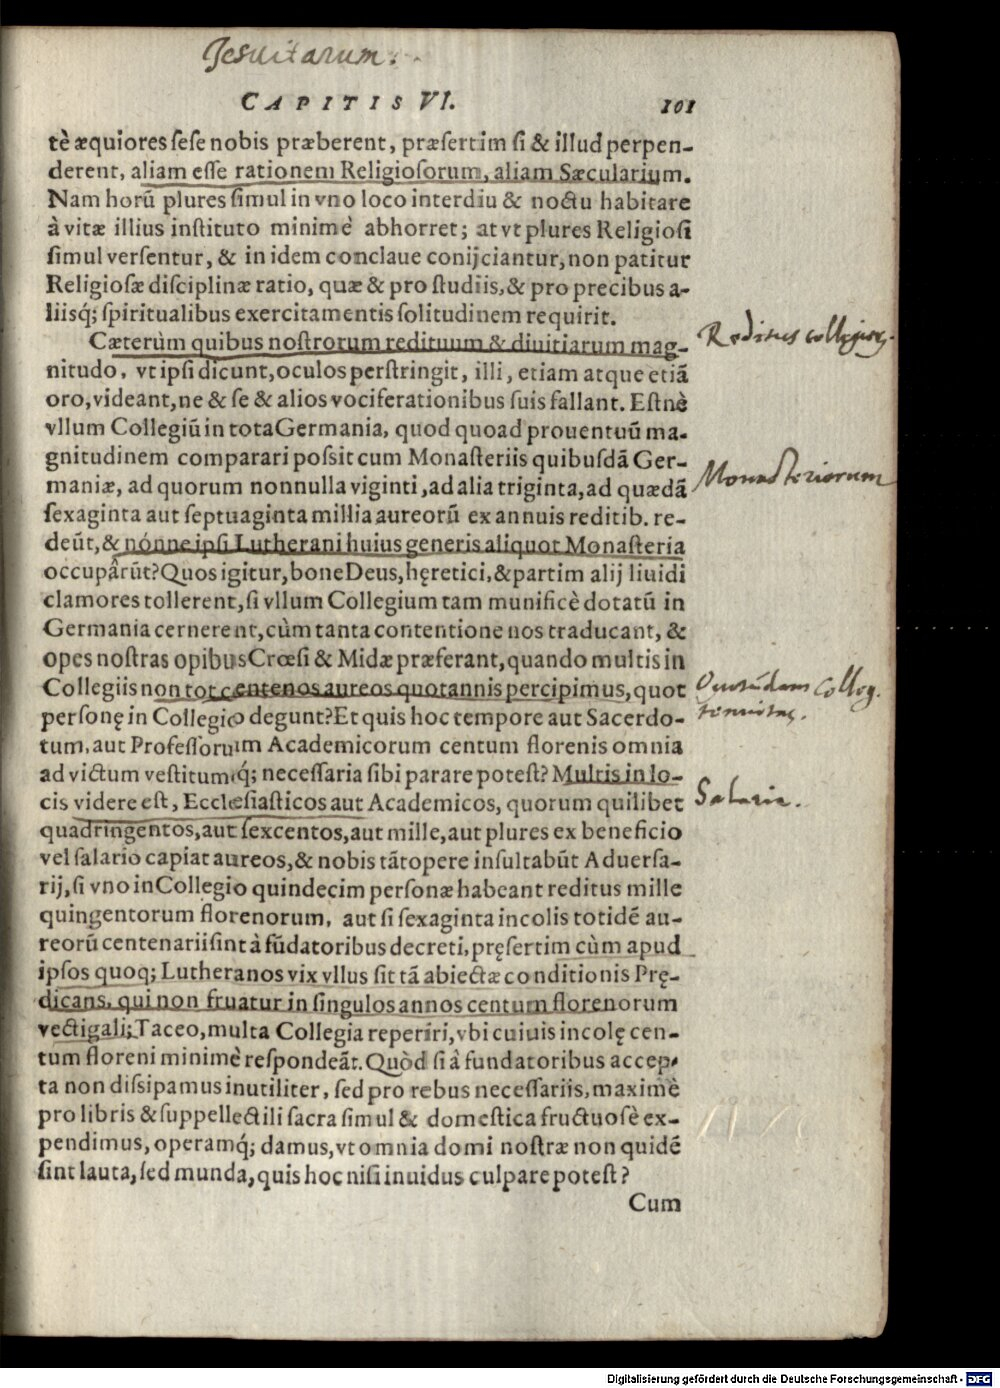 Jesuitarum.
CAPITIS VI. 101
tè æquiores sese nobis præberent, præsertim si & illud perpen-
derent, aliam esse rationem Religiosorum, aliam Sæcularium.
Nam horũ plures simul in vno loco interdiu & noctu habitare
à vitæ illius instituto minimè abhorret; at vt plures Religiosi
simul versentur, & in idem conclaue conijciantur, non patitur
Religiosæ disciplinæ ratio, quæ & pro studiis, & pro precibus a-
liisq́; spiritualibus exercitamentis solitudinem requirit.
Cæterùm quibus nostrorum redituum & diuitiarum mag-
Reditus collegior.
nitudo, vt ipsi dicunt, oculos perstringit, illi, etiam atque etiã
oro, videant, ne & se & alios vociferationibus suis fallant. Estnè
vllum Collegiũ in tota Germania, quod quoad prouentuũ ma-
gnitudinem comparari possit cum Monasteriis quibusdã Ger-
maniæ, ad quorum nonnulla viginti, ad alia triginta, ad quædã
Monasteriorum
sexaginta aut septuaginta millia aureorũ ex annuis reditib. re-
deũt, & nónne ipsi Lutherani huius generis aliquot Monasteria
occupârũt? Quos igitur, bone Deus, hęretici, & partim alij liuidi
clamores tollerent, si vllum Collegium tam munificè dotatũ in
Germania cernerent, cùm tanta contentione nos traducant, &
opes nostras opibus Crœsi & Midæ præferant, quando multis in
Collegiis non tot centenos aureos quotannis percipimus, quot
Quorũdam Colleg.
tenuitas.
personę in Collegio degunt? Et quis hoc tempore aut Sacerdo-
tum, aut Professorum Academicorum centum florenis omnia
ad victum vestitumq́; necessaria sibi parare potest? Multis in lo-
cis videre est, Ecclesiasticos aut Academicos, quorum quilibet
Salaria.
quadringentos, aut sexcentos, aut mille, aut plures ex beneficio
vel salario capiat aureos, & nobis tãtopere insultabũt Aduersa-
rij, si vno in Collegio quindecim personæ habeant reditus mille
quingentorum florenorum, aut si sexaginta incolis totidẽ au-
reorũ centenarii sint à fũdatoribus decreti, pręsertim cùm apud
ipsos quoq; Lutheranos vix vllus sit tã abiectæ conditionis Prę-
dicans, qui non fruatur in singulos annos centum florenorum
vectigali; Taceo, multa Collegia reperiri, vbi cuiuis incolę cen-
tum floreni minimè respondeãt. Quòd si à fundatoribus accep-
ta non dissipamus inutiliter, sed pro rebus necessariis, maximè
pro libris & suppellectili sacra simul & domestica fructuosè ex-
pendimus, operamq́; damus, vt omnia domi nostræ non quidẽ
sint lauta, sed munda, quis hoc nisi inuidus culpare potest?
Cum
Digitalisierung gefördert durch die Deutsche Forschungsgemeinschaft - DFG